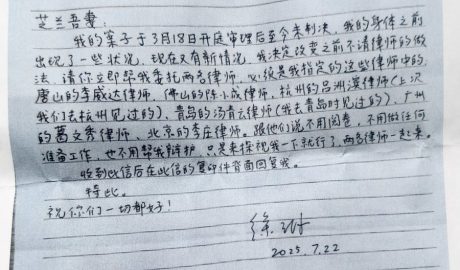 芝兰吾妻:
我的案子于3月18日开庭审理后至今未判决,我的身体之前
出现了一些状况,现在又有新情况,我决定改变之前不请律师的做
法,请你立即帮我委托两名律师,必须是我指定的这些律师中的:
唐山的李威达律师,佛山的陈小成律师,杭州的吕洲滨律师(上次
我们去杭州见过的)、青岛的汤青法律师(我去青岛时见过的)、广州
的葛文秀律师、北京的李庄律师。跟他们说不用阅卷,不用做任何
准备工作,也不用帮我辩护,只是来探视我一下就行了,两名律师一起来。
收到此信后在此信的复印件背面回复我。
特此。
祝你们一切都好!
徐
2025.7.22